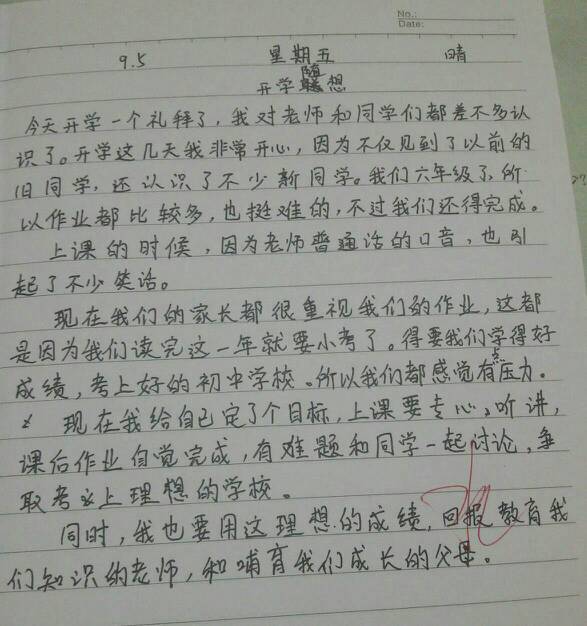 No.:
Date:
9.5 星期五 晴
开学随想
今天开学一个礼拜了，我对老师和同学们都差不多认
识了。开学这几天我非常开心，因为不仅见到了以前的
旧同学，还认识了不少新同学。我们六年级了，所
以作业都比较多，也挺难的，不过我们还得完成。
上课的时候，因为老师普通话的口音，也引
起了不少笑话。
现在我们的家长都很重视我们的作业，这都
是因为我们读完这一年就要小考了。得要我们学得好
成绩，考上好的初中学校。所以我们都感觉有点压力。
现在我给自己定了个目标，上课要专心听讲，
课后作业自觉完成，有难题和同学一起讨论，争
取考上理想的学校。
同时，我也要用这理想的成绩，回报教育我
们知识的老师，和哺育我们成长的父母。